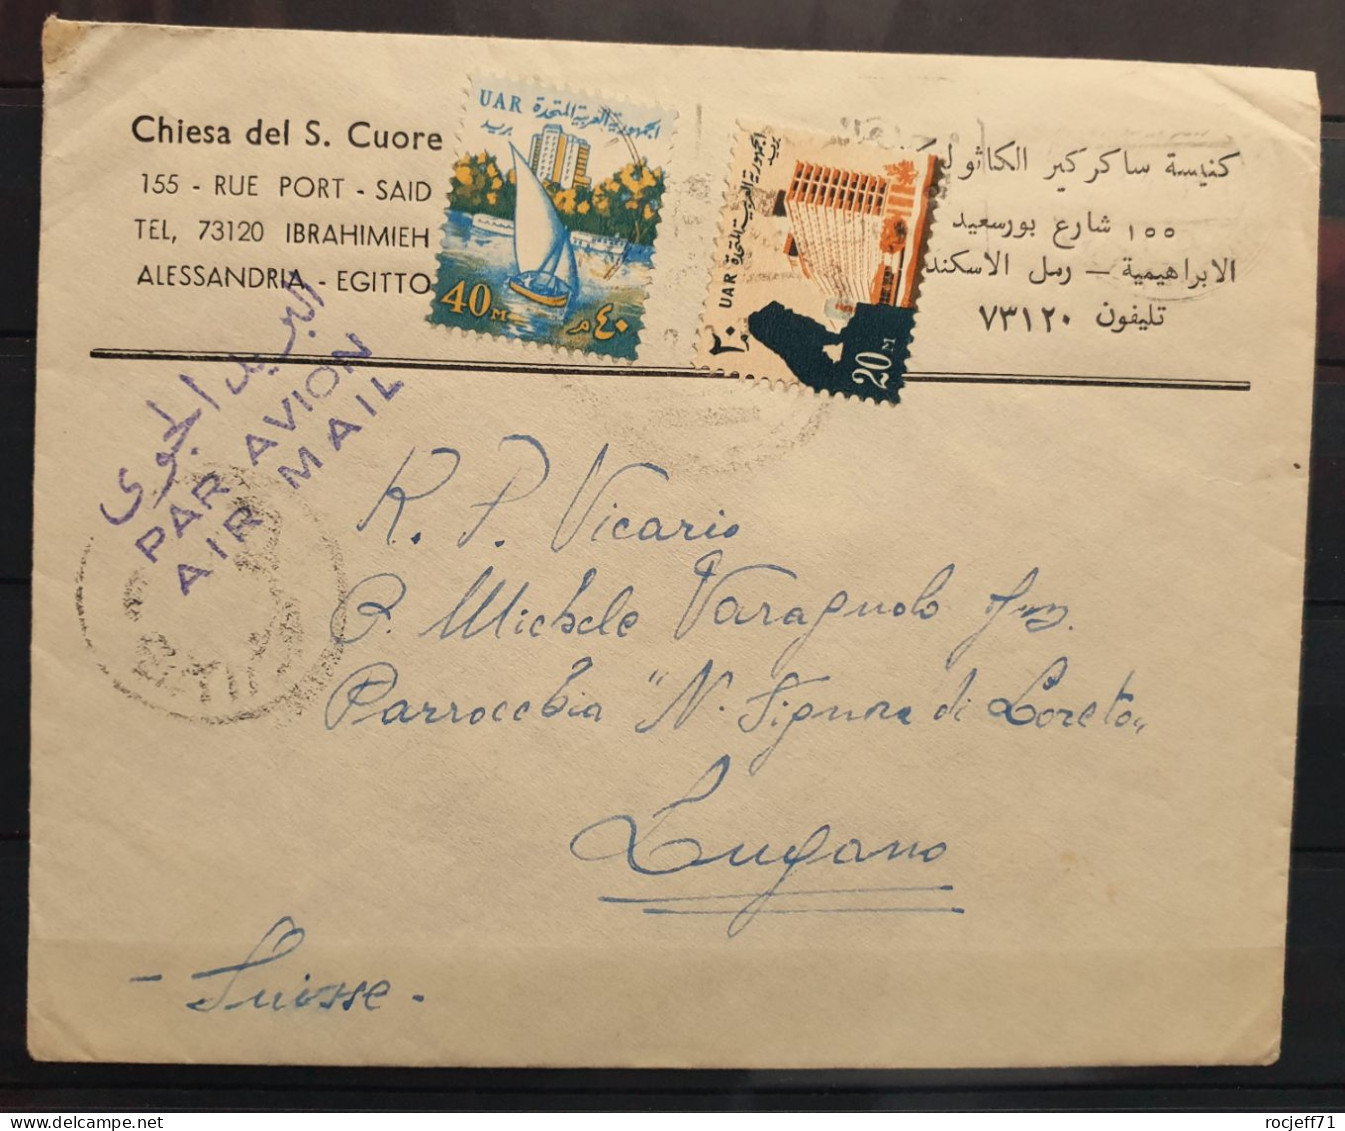 Chiesa del S. Cuore
155 - RUE PORT - SAID
TEL, 73120 IBRAHIMIEH
ALESSANDRIA - EGITTO
UAR الجمهورية العربية المتحدة
بريد
40 M ٤٠ م
الجمهورية العربية المتحدة UAR
بريد
٢٠ م
20 M
كنيسة ساكركير الكاثوليك
١٥٥ شارع بورسعيد
الابراهيمية — رمل الاسكند
تليفون ٧٣١٢٠
البريد الجوى
PAR AVION
AIR MAIL
R. P. Vicario
P. Michele Varagnolo
Parrocchia "N. Signora di Loreto"
Lugano
- Suisse -
rocjeff71